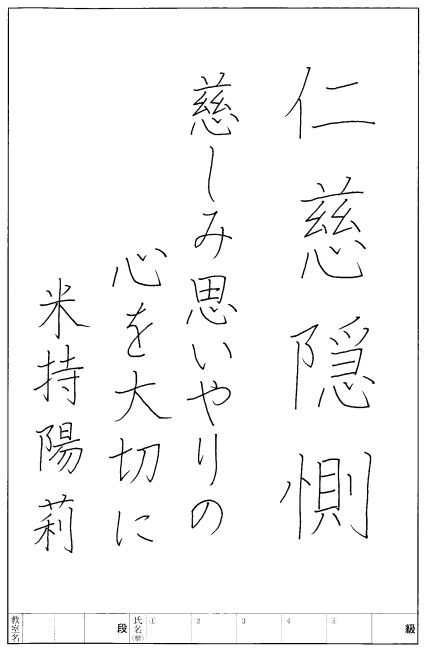 仁慈隠惻
慈しみ思いやりの
心を大切に
米持陽莉
級
⑤
4
3
2
①
氏名(号)
段
教室名